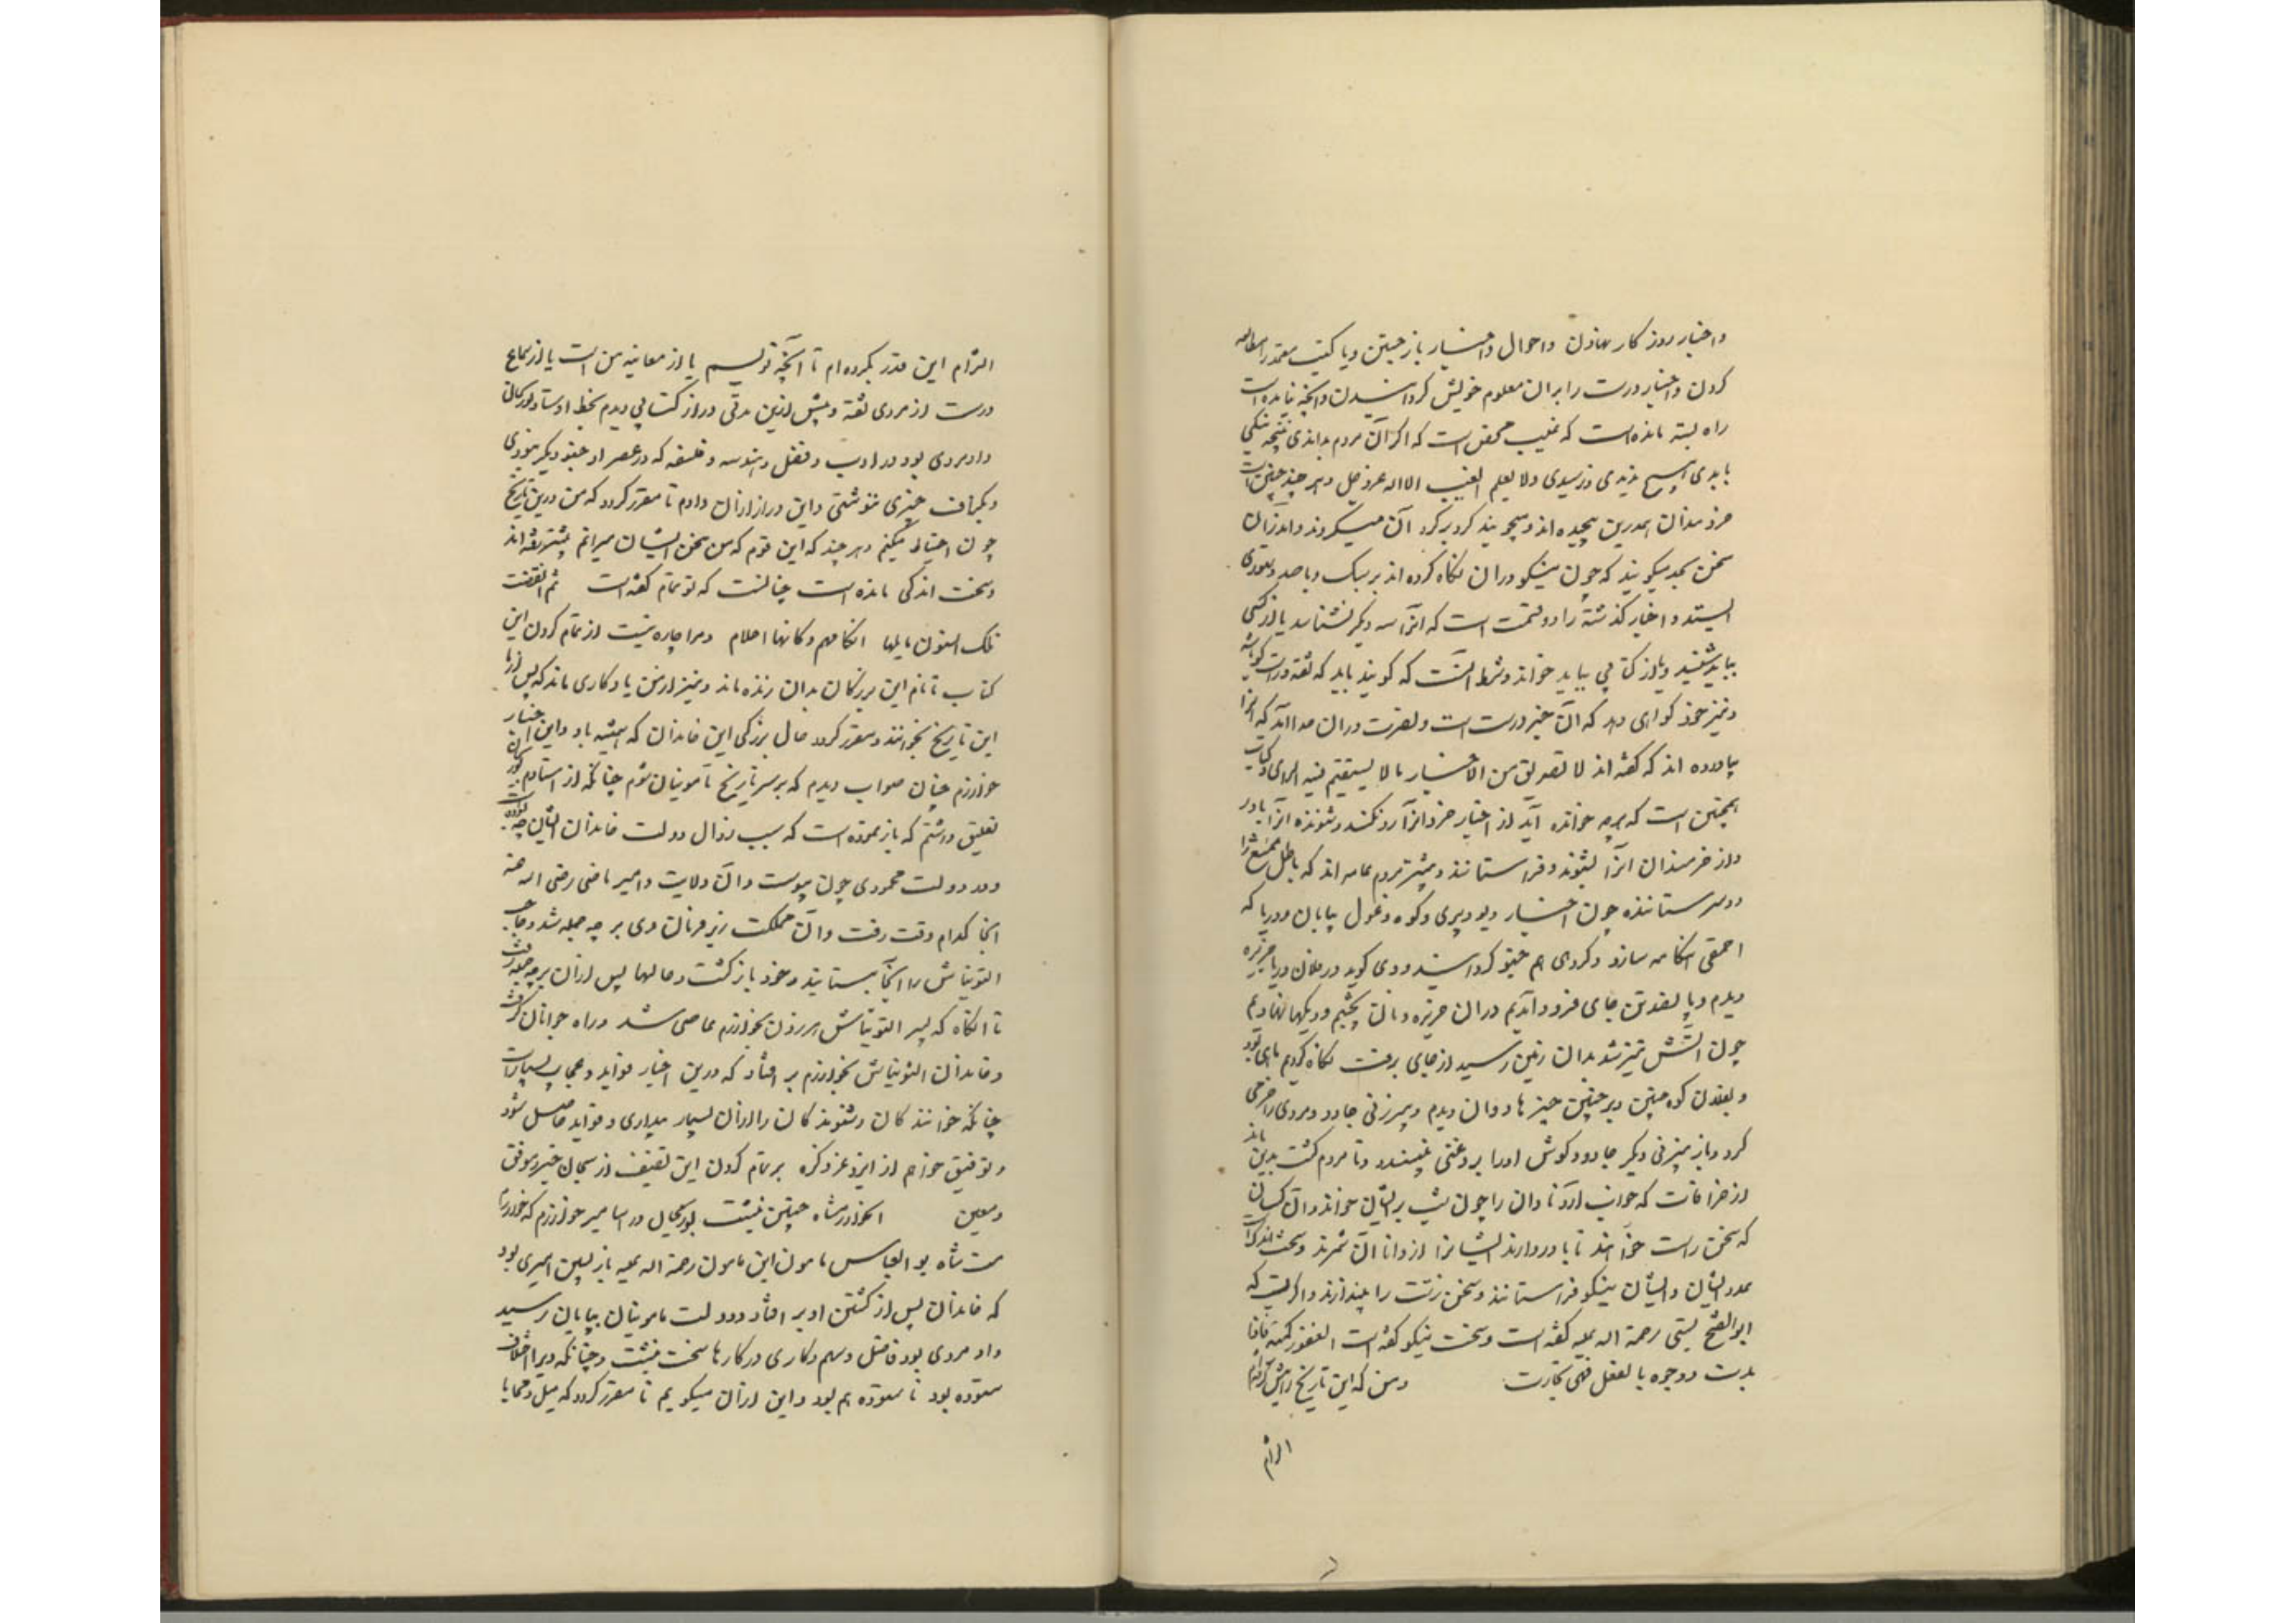 واخبار روز کار بهاذن واحوال واخبار باز جستن ویا کتب معتمد را مطالعه
کردن واخبار درست را بران معلوم خویش کردانیدن وانچه نیامده است
راه بسته مانده است که غیب محض است که اکر آن مردم بداندی نتیجه نیکی
یابدی هیچ بذیدی ورسیدی ولا یعلم الغیب الا اله عزوجل وهر چند چنین است
خردمندان بدرین پیچیده اند ومیجویند کرد بر کرد آن میکردند واندر آن
سخن بجد میکویند که چون نیکو دران نکاه کرده اند بر نیک ویا ضد
ایستد واخبار کذشته را دو قسمت است که انرا سه دیکر نشناسد یا از کسی
بباید شنید ویا از کتابی بباید خواند وشرط انست که کوینده باید که ثقه وراست کو باشد
ونیز خرد کواهی دهد که آن خبر درست است ونصرت دران خدا آنرا که
بیاورده اند که کفته اند لا تصدیق من الاخبار ما لا یستقیم فیه الرای وکتاب
همچنین است که هرچه خوانده آید از اخبار خرد انرا رد نکند وشنونده انرا باور
واز خرمندان انرا بشنوند وفراستانند وبیشتر مردم عامه اند که باطل ممتنع را
دوستر ستاننده چون اخبار دیو وپری وکوه وغول بیابان ودریا که
احمقی هنکامه سازد وکردی هم جنو کردایند ووی کوید در فلان دریا جزیره
دیدم وپانصد تن جای فرود آمدیم دران جزیره ونان پختیم ودیکها نهادیم
چون آتش تیز شد بدان زمین رسید از جای برفت نکاه کردیم ماهی بود
وبفلان کوه چنین وبر چنین چیزها دوان دیدم وپیرزنی جادو ومردی را خری
کرد وباز پیرزنی دیکر جادو کوش اورا بروغنی بیندود وتا مردم کشت بدین ماند
از خرافات که خواب آرد نادان را چون شب بر ایشان خوانند وآن کسان
که سخن راست خواهند تا باور دارند ایشانرا از دانا آن شمرند وسخت اندک است
عدد ایشان وایشان نیکو فراستانند وسخن زشت را بیندازند واکر بست که
ابو الفتح بستی رحمة اله علیه کفته است وسخت نیکو کفته است
ومن که این تاریخ را پیش کرفته ام
الزام
الزام این قدر بکرده ام تا آنچه نویسم یا از معاینه من است یا از سماع
درست از مردی ثقه وپیش ازین مدتی دراز کتابی دیدم بخط اوستاد بوریحان
واو مردی بود در ادب وفضل وهندسه وفلسفه که در عصر او چنو دیکر نبودی
وبکزاف چیزی ننوشتی واین دراز ازان دادم تا مقرر کردد که من درین تاریخ
چون احتیاط میکنم وهر چند که این قوم که من سخن ایشان میرانم بیشتر رفته اند
وسخت اندکی مانده است چنانست که بوتمام کفته است ثم انقضت
تلک السنون واهلها فکانهم وکانها احلام ومرا چاره نیست از تمام کردن این
کتاب تا نام این بزرکان بدان زنده ماند ونیز از من یادکاری ماند که پس از ما
این تاریخ بخوانند ومقرر کردد حال بزرکی این خاندان که همیشه باد واین اخبار
خوارزم چنان صواب دیدم که بر سر تاریخ مامونیان شوم چنانکه از استادم بوریحان
تعلیق داشتم که باز نموده است که سبب زوال دولت خاندان ایشان چه بوده است
ودر دولت محمودی چون پیوست وآن ولایت وامیر ماضی رضی اله عنه
انجا کدام وقت رفت وآن مملکت زیر فرمان وی بر چه جمله شد وحاجب
التونتاش را آنجا بستانید وخود باز کشت وحالها پس ازان بر چه جمله رفت
تا انکاه که پسر التونتاش هرون بخوارزم عاصی شد وراه جوانان کرفت
وخاندان التونتاش بخوارزم بر افتاد که درین اخبار فواید وعجایب بسیار است
چنانکه خوانند کان وشنوند کان را ازان بسیار بیداری وفواید حاصل شود
وتوفیق خواهم از ایزد عز ذکره بر تمام کردن این تصنیف از سبحان خیر موفق
ومعین اخوارزمشاه چنین نبشت بوریحال در اسامیر خوارزم که خوارزم
ست شاه بو العباس مامون ابن مامون رحمة اله علیه باز پسین امیری بود
که خاندان پس از کشتن او بر افتاد ودولت مامونیان بپایان رسید
واو مردی بود فاضل وسهم وکاری در کارها سخت نبشت وچنانکه ویرا اخلاق
ستوده بود ناستوده هم بود واین ازان میکویم تا مقرر کردد که میل ومحابا